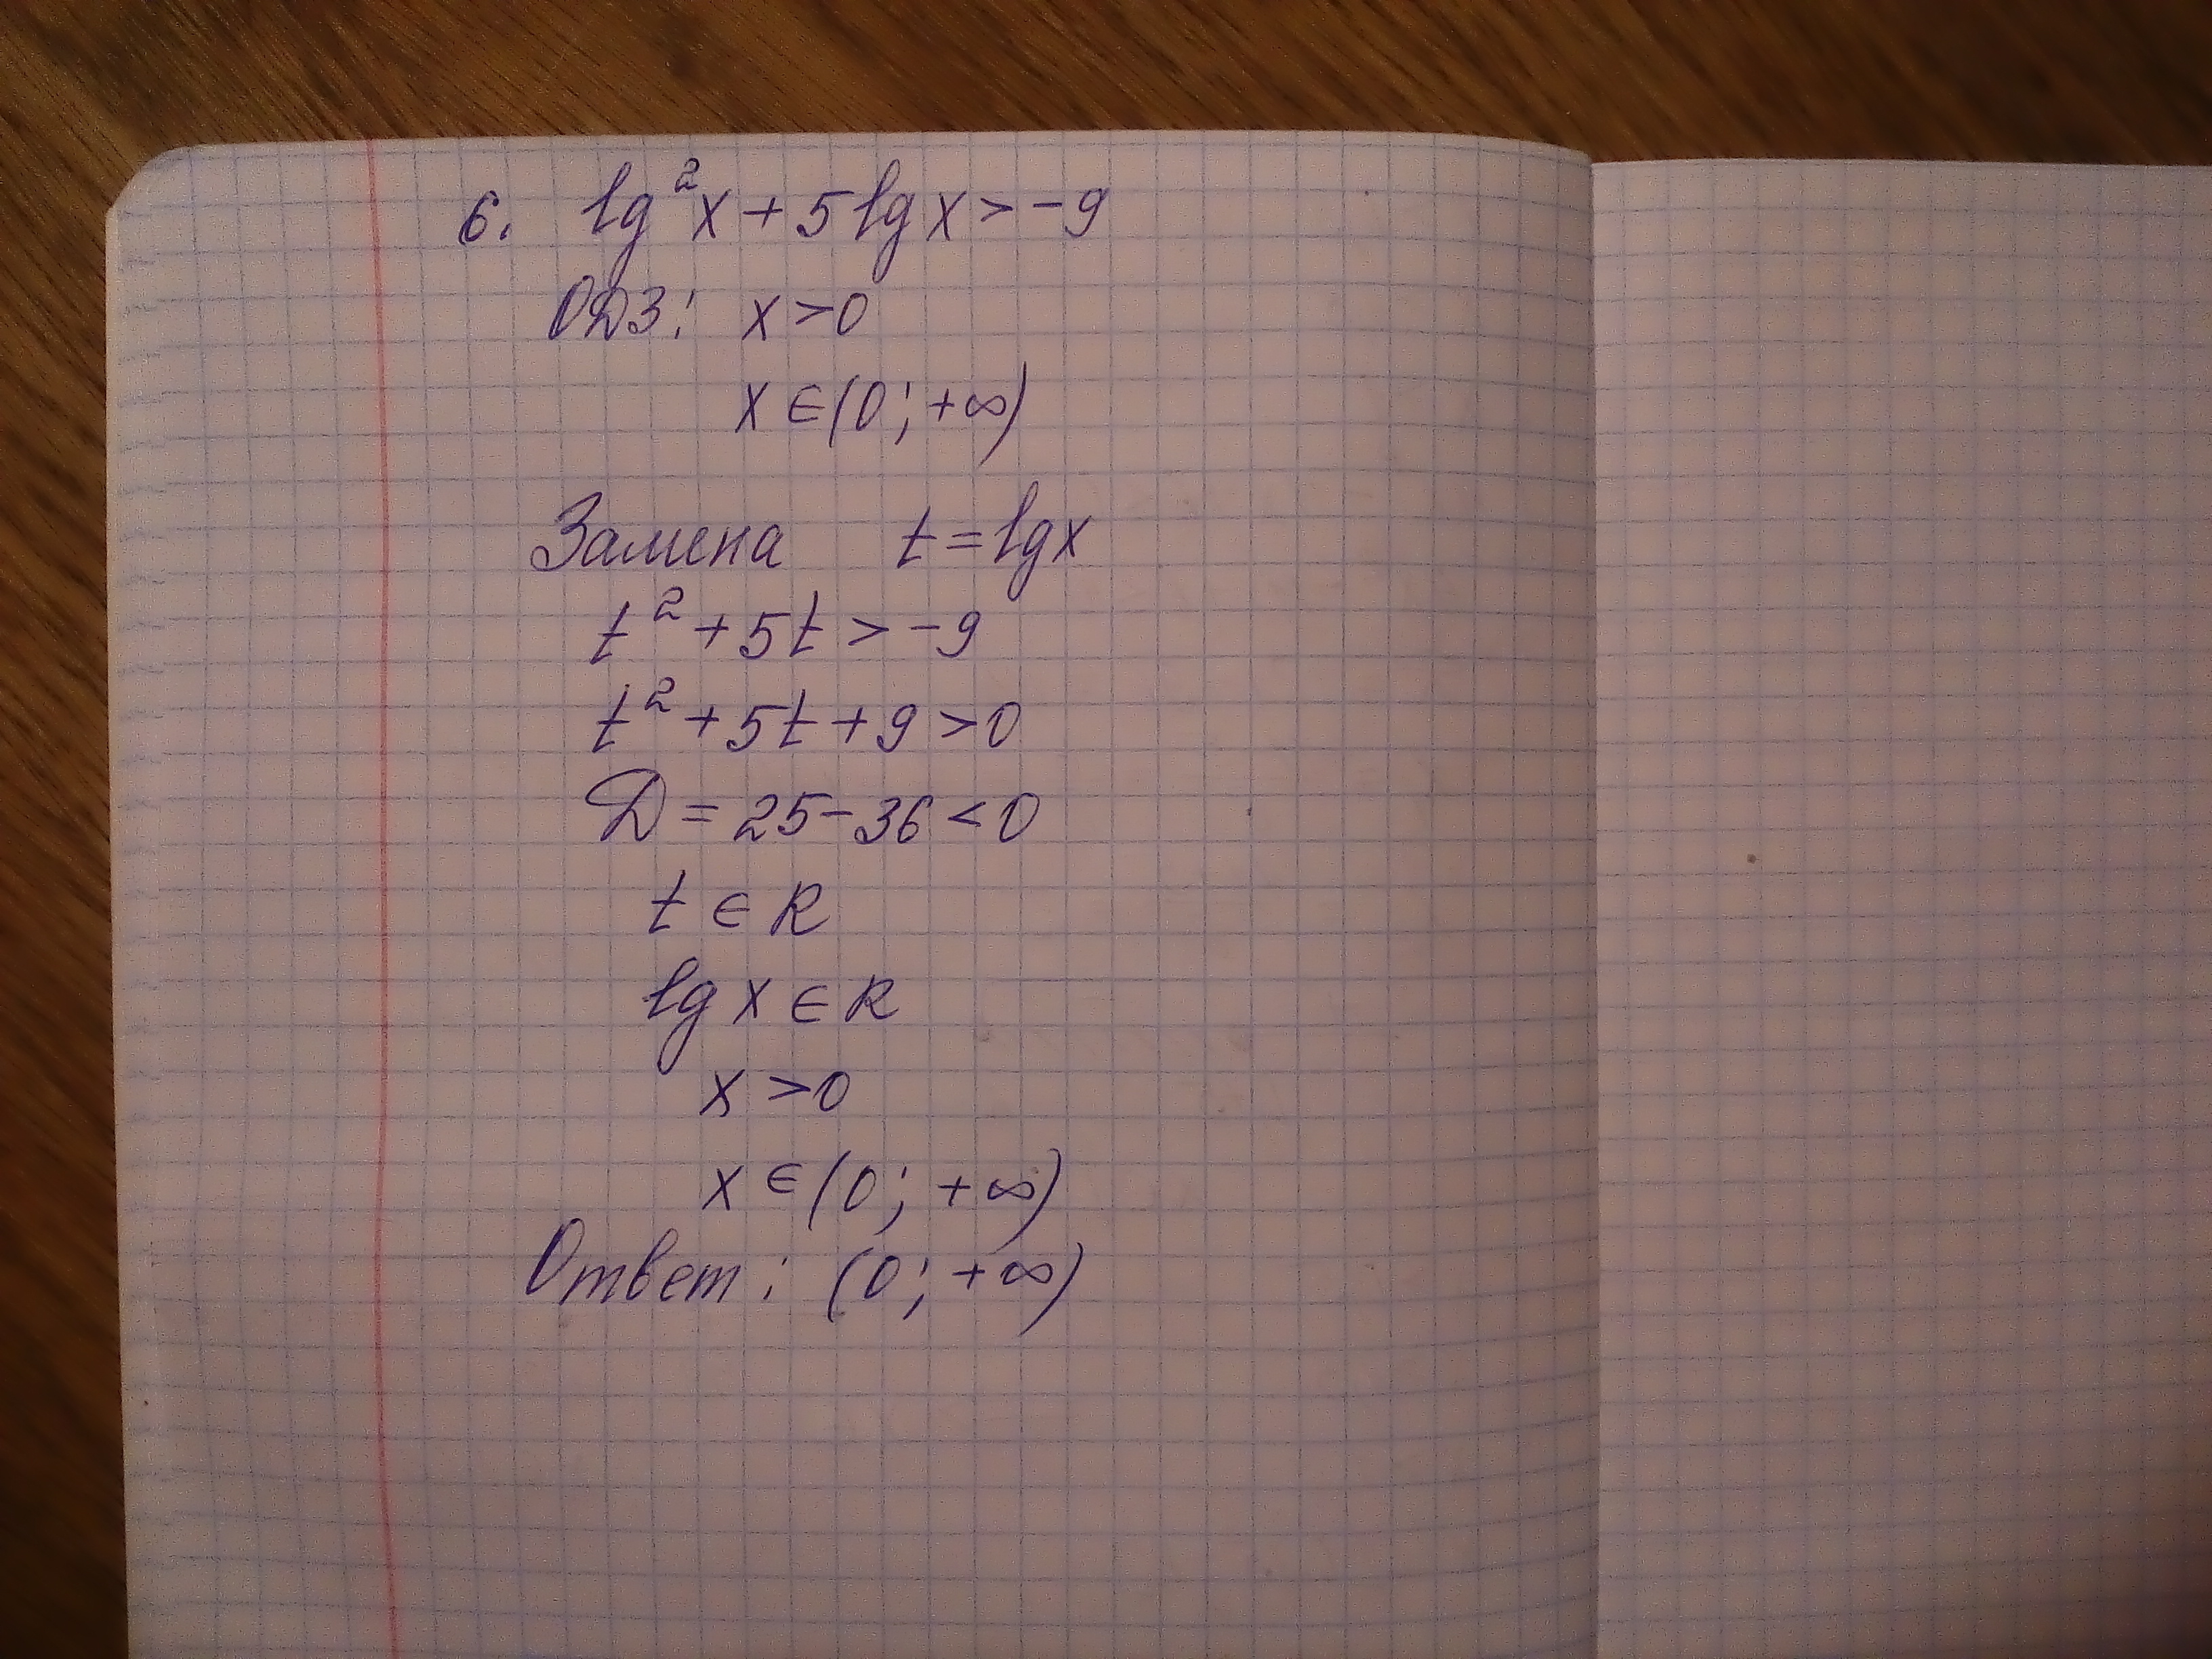 6. lg²x + 5lgx > -9
ОДЗ: x > 0
x ∈ (0; +∞)
Замена t = lgx
t² + 5t > -9
t² + 5t + 9 > 0
D = 25 - 36 < 0
t ∈ R
lg x ∈ R
x > 0
x ∈ (0; +∞)
Ответ: (0; +∞)